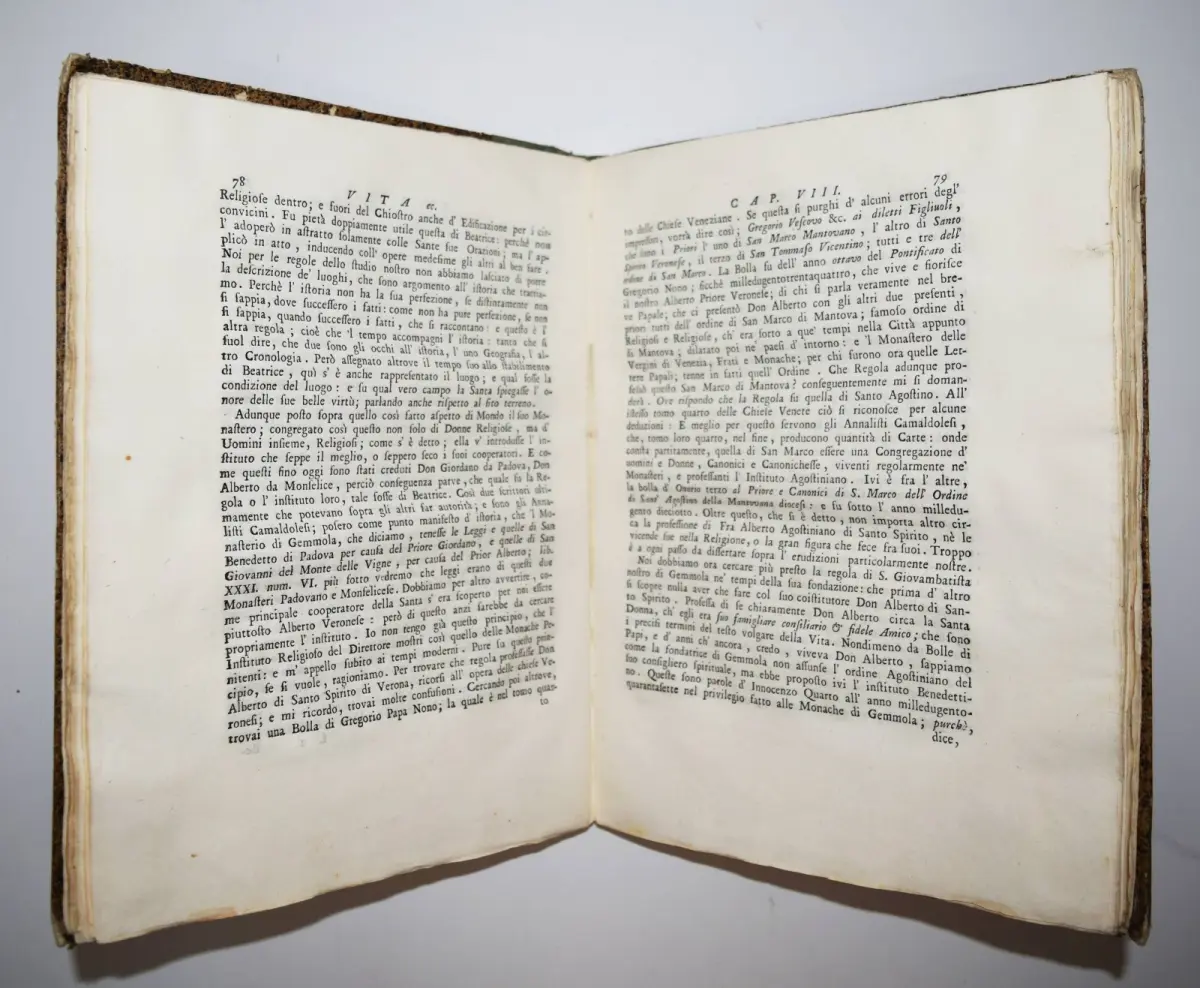 78
VITA ec.
Religiose dentro; e fuori del Chiostro anche d' Edificazione per i cir-
convicini. Fu pietà doppiamente utile questa di Beatrice: perchè non
l' adoperò in astratto solamente colle Sante sue Orazioni; ma l' ap-
plicò in atto, inducendo coll' opere medesime gli altri al ben fare.
Noi per le regole dello studio nostro non abbiamo lasciato di porre
la descrizione de' luoghi, che sono argomento all' istoria che trattia-
mo. Perchè l' istoria non ha la sua perfezione, se distintamente non
si sappia, dove successero i fatti: come non ha pure perfezione, se non
si sappia, quando successero i fatti, che si raccontano: e questa è l'
altra regola; cioè che 'l tempo accompagni l' istoria: tanto che si
suol dire, che due sono gli occhi all' istoria, l' uno Geografia, l' al-
tro Cronologia. Però assegnato altrove il tempo suo allo stabilimento
di Beatrice, quì s' è anche rappresentato il luogo; e qual fosse la
condizione del luogo: e su qual vero campo la Santa spiegasse l' o-
nore delle sue belle virtù; parlando anche rispetto al sito terreno.
Adunque posto sopra quello così fatto aspetto di Mondo il suo Mo-
nastero; congregato così questo non solo di Donne Religiose, ma d'
Uomini insieme, Religiosi; come s' è detto; ella v' introdusse l' in-
stituto che seppe il meglio, o seppero seco i suoi cooperatori. E co-
me questi fino oggi sono stati creduti Don Giordano da Padova, Don
Alberto da Monselice, perciò conseguenza parve, che quale fu la Re-
gola o l' instituto loro, tale fosse di Beatrice. Così due scrittori ulti-
mamente che potevano sopra gli altri far autorità; e sono gli Anna-
listi Camaldolesi; posero come punto manifesto d' istoria, che 'l Mo-
nasterio di Gemmola, che diciamo, tenesse le Leggi e quelle di San
Benedetto di Padova per causa del Priore Giordano, e quelle di San
Giovanni del Monte delle Vigne, per causa del Prior Alberto; lib.
XXXI. num. VI. più sotto vedremo che leggi erano di questi due
Monasteri Padovano e Monselicese. Dobbiamo per altro avvertire, co-
me principale cooperatore della Santa s' era scoperto per noi essere
piuttosto Alberto Veronese: però di questo anzi sarebbe da cercare
propriamente l' instituto. Io non tengo già questo principio, che l'
Instituto Religioso del Direttore mostri così quello delle Monache Pe-
nitenti: e m' appello subito ai tempi moderni. Pure su questo prin-
cipio, se si vuole, ragioniamo. Per trovare che regola professasse Don
Alberto di Santo Spirito di Verona, ricorsi all' opera delle chiese Ve-
ronesi; e mi ricordo, trovai molte confusioni. Cercando poi altrove,
trovai una Bolla di Gregorio Papa Nono; la quale è nel tomo quar-
to
CAP. VIII.
79
to delle Chiese Veneziane. Se questa si purghi d' alcuni errori degl'
impressori, vorrà dire così; Gregorio Vescovo &c. ai diletti Figliuoli,
che sono i Priori l' uno di San Marco Mantovano, l' altro di Santo
Spirito Veronese, il terzo di San Tommaso Vicentino; tutti e tre dell'
ordine di San Marco. La Bolla fu dell' anno ottavo del Pontificato di
Gregorio Nono; sicchè milledugentotrentaquattro, che vive e fiorisce
il nostro Alberto Priore Veronese; di chi si parla veramente nel bre-
ve Papale; che ci presentò Don Alberto con gli altri due presenti,
priori tutti dell' ordine di San Marco di Mantova; famoso ordine di
Religiosi e Religiose, ch' era sorto a que' tempi nella Città appunto
di Mantova; dilatato poi ne' paesi d' intorno: e 'l Monastero delle
Vergini di Venezia, Frati e Monache; per chi furono ora quelle Let-
tere Papali; tenne in fatti quell' Ordine. Che Regola adunque pro-
fessò questo San Marco di Mantova? conseguentemente mi si doman-
derà. Ove rispondo che la Regola fu quella di Santo Agostino. All'
istesso tomo quarto delle Chiese Venete ciò si riconosce per alcune
deduzioni: E meglio per questo servono gli Annalisti Camaldolesi,
che, tomo loro quarto, nel fine, producono quantità di Carte: onde
consta partitamente, quella di San Marco essere una Congregazione d'
uomini e Donne, Canonici e Canonichesse, viventi regolarmente ne'
Monasteri, e professanti l' Instituto Agostiniano. Ivi è fra l' altre,
la bolla d' Onorio terzo al Priore e Canonici di S. Marco dell' Ordine
di Sant' Agostino della Mantovana diocesi: e fu sotto l' anno milledu-
gento dieciotto. Oltre questo, che si è detto, non importa altro cir-
ca la professione di Fra Alberto Agostiniano di Santo Spirito, nè le
vicende sue nella Religione, o la gran figura che fece fra suoi. Troppo
è a ogni passo da dissertare sopra l' erudizioni particolarmente nostre.
Noi dobbiamo ora cercare più presto la regola di S. Giovambatista
nostro di Gemmola ne' tempi della sua fondazione: che prima d' altro
si scopre nulla aver che fare col suo coistitutore Don Alberto di San-
to Spirito. Professa di se chiaramente Don Alberto circa la Santa
Donna, ch' egli era suo famigliare consiliario & fidele Amico; che sono
i precisi termini del testo volgare della Vita. Nondimeno da Bolle di
Papi, e d' anni ch' ancora, credo, viveva Don Alberto, sappiamo
come la fondatrice di Gemmola non assunse l' ordine Agostiniano del
suo consigliero spirituale, ma ebbe proposto ivi l' instituto Benedetti-
no. Queste sono parole d' Innocenzo Quarto all' anno milledugento-
quarantasette nel privilegio fatto alle Monache di Gemmola; purchè,
dice,